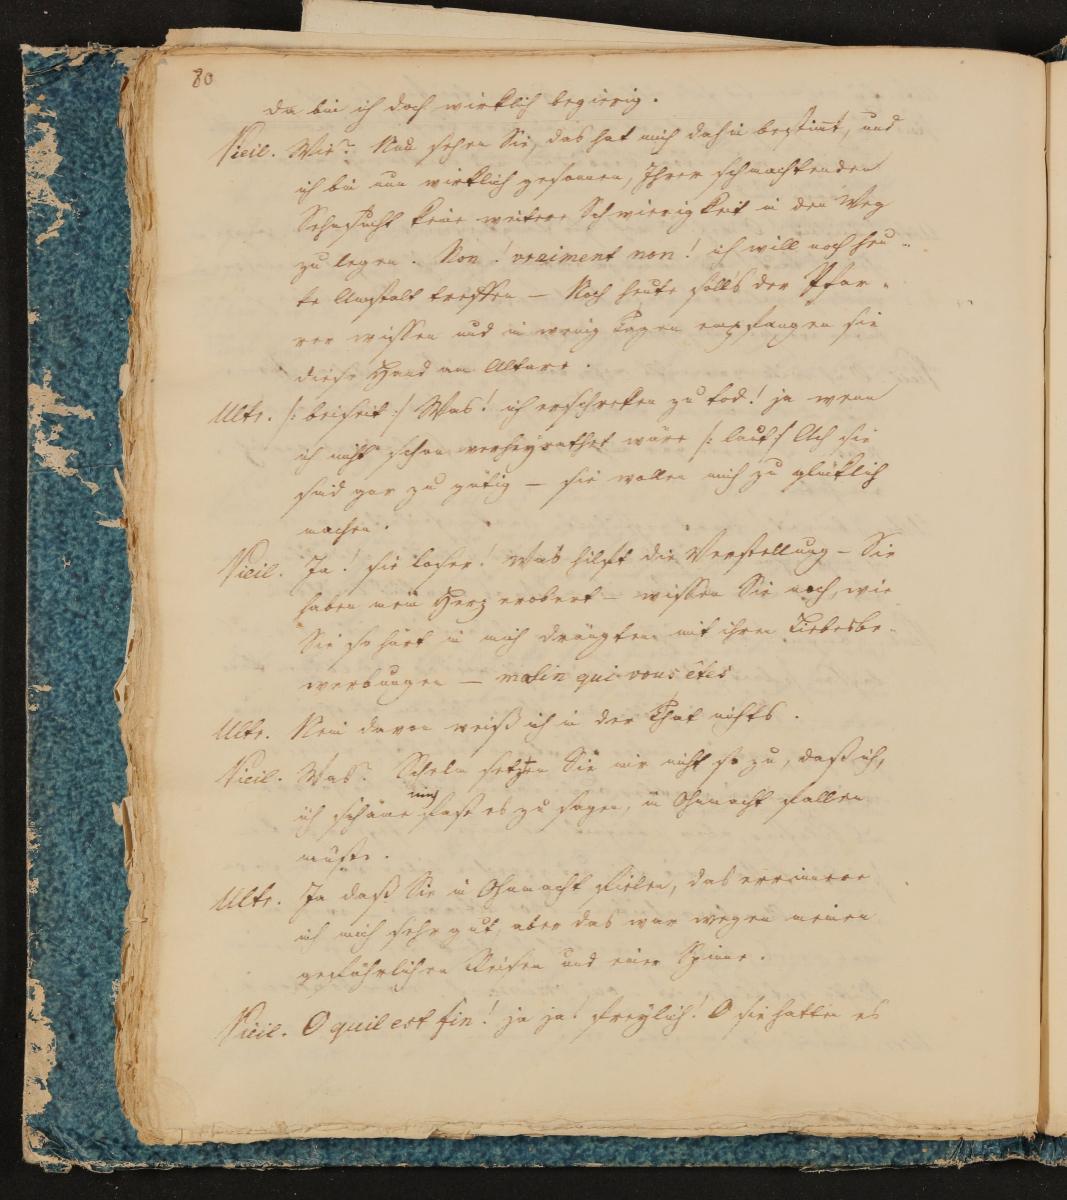 80
da bin ich doch wirklich begierig.
Vieil. Wie? Nun sehen Sie, das hat mich dahin bestimt, und
ich bin nun wirklich gesonnen, Ihrer schmachtenden
Sehnsucht keine weitere Schwierigkeit in den Weg
zu legen. Non! vraiment non! ich will noch heu-
te Anstalt treffen — Noch heute solls der Pfar-
rer wissen und in wenig Tagen empfangen sie
diese Hand am Altare.
Ultr. /: beiseit :/ Was! ich erschreken zu tod! ja wenn
ich nicht schon verheyrathet wäre /: laut :/ Ach sie
sind gar zu gütig — sie wollen mich zu glüklich
machen.
Vieil. Ja! sie loser! was hilft die Verstellung — Sie
haben mein Herz erobert — wissen Sie noch, wie
Sie so hart in mich drangten mit ihren Liebesbe-
werbungen — malin qui vous êtes
Ultr. Nein davon weiß ich in der That nichts.
Vieil. Was? Schelm setzten Sie mir nicht so zu, daß ich,
ich schäme mich fast es zu sagen, in Ohnmacht fallen
mußte.
Ultr. Ja daß Sie in Ohnmacht fielen, das errinnere
ich mich sehr gut, aber das war wegen meinen
gefährlichen Reisen und einer Spinne.
Vieil. O quil est fin! ja ja! freylich! O sie hatten es